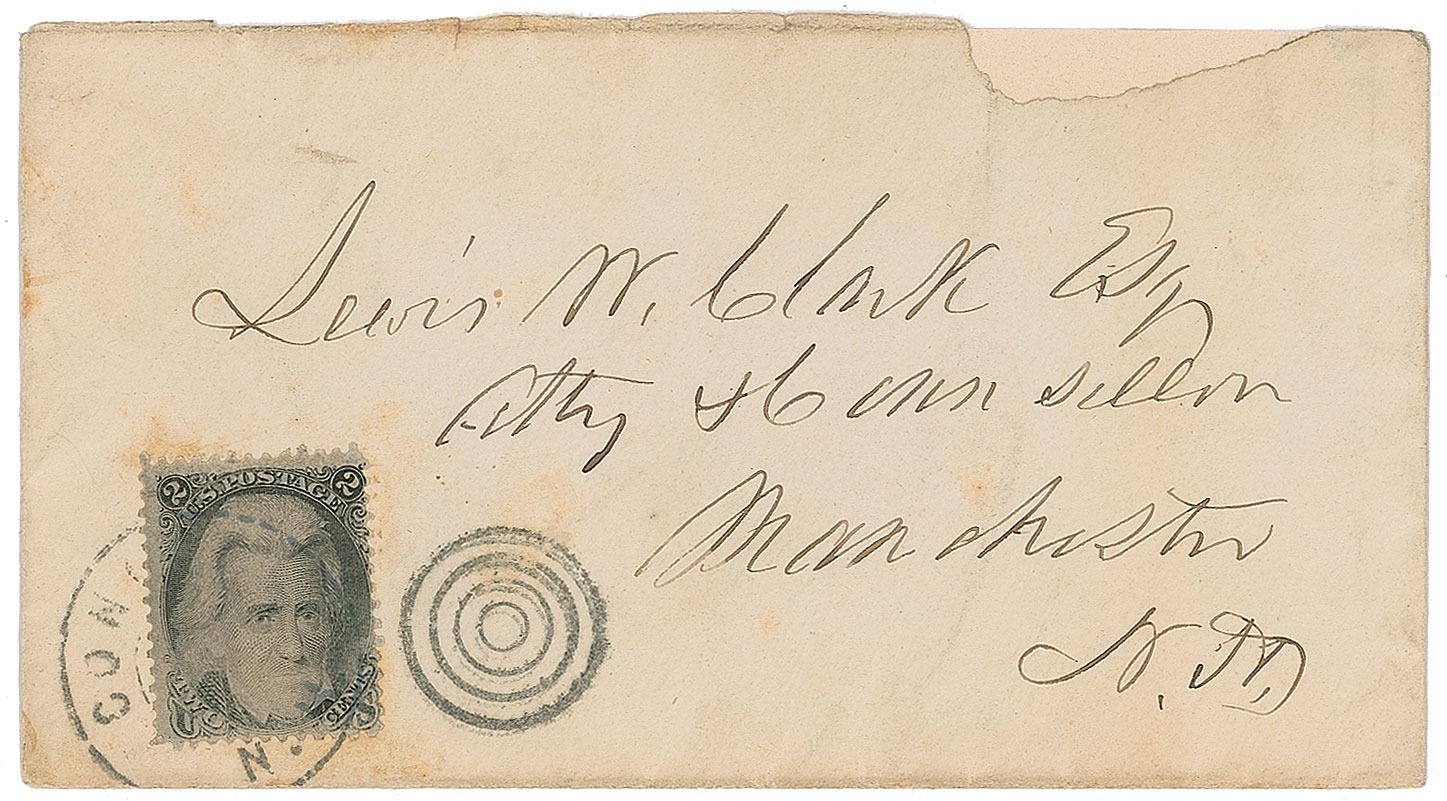 Lewis W. Clark Esq
Atty & Counsellor
Manchester
N. H.
2 U.S. POSTAGE 2
TWO CENTS
CON
N.